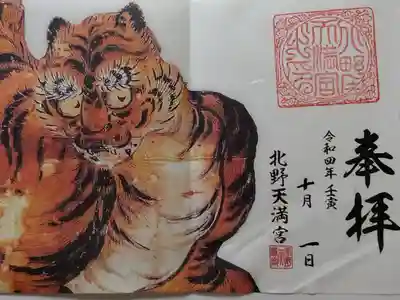 奉拝
令和四年 壬寅
十月 一日
北野天満宮